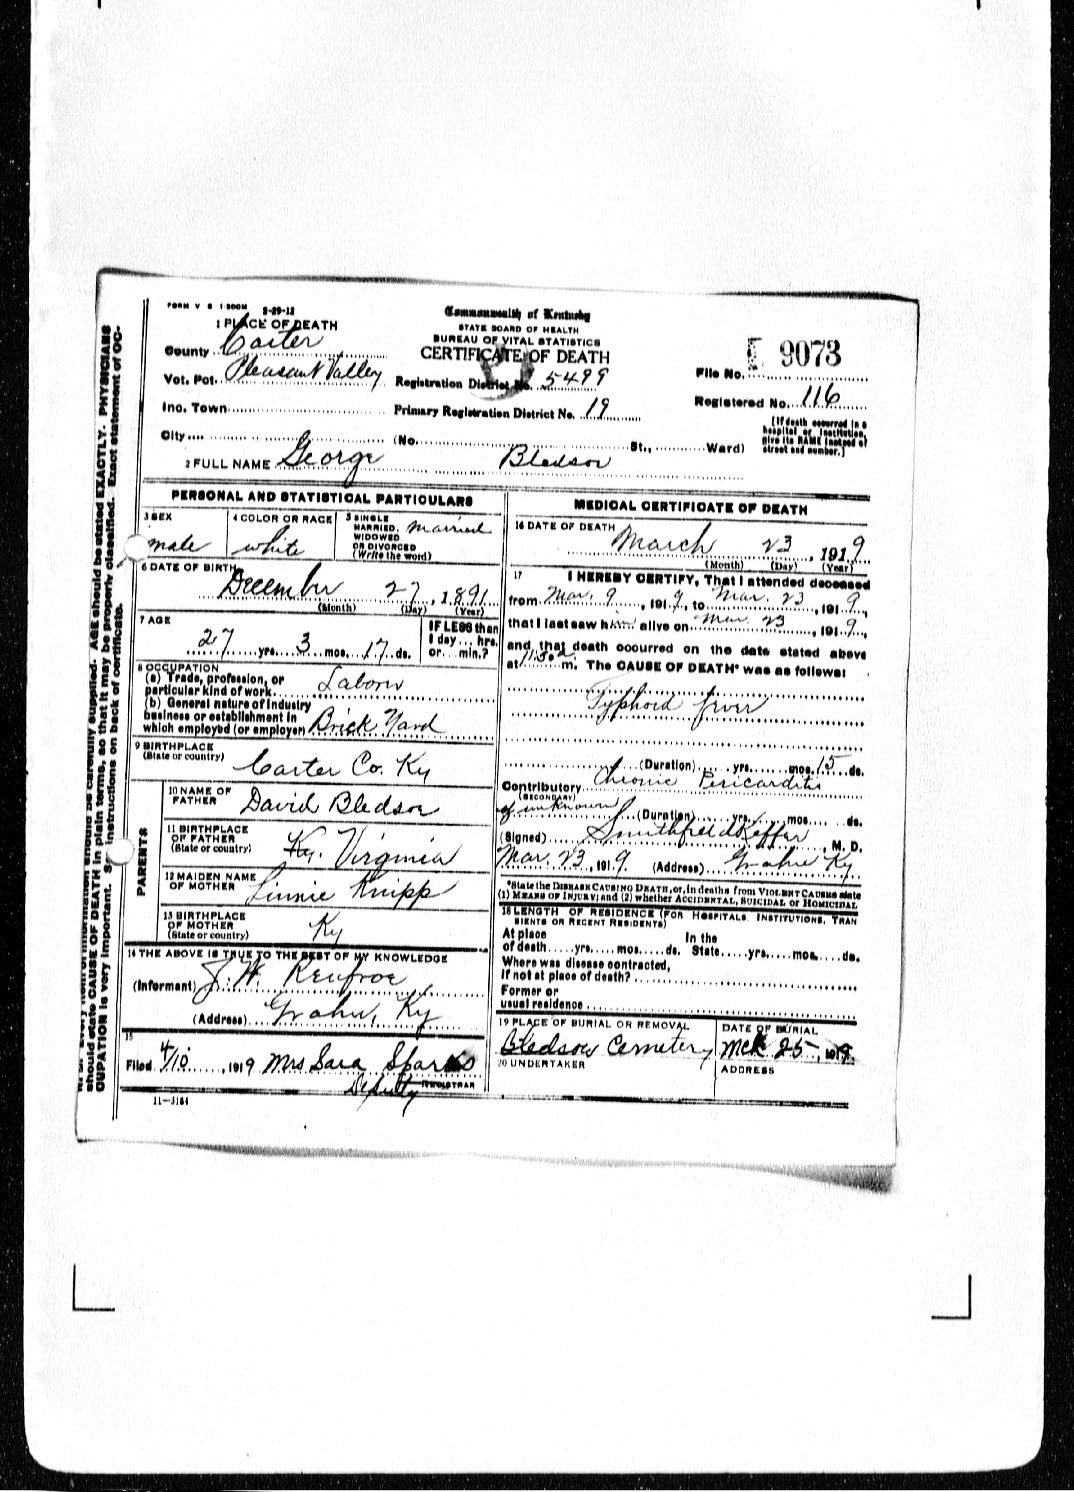 FORM V S 1 500M 2-29-12
Commonwealth of Kentucky
STATE BOARD OF HEALTH
BUREAU OF VITAL STATISTICS
CERTIFICATE OF DEATH
1 PLACE OF DEATH
County Carter
Vot. Pct. Pleasant Valley
Registration District No. 5499
File No. 9073
Inc. Town
Primary Registration District No. 19
Registered No. 116
City (No. St., Ward)
[If death occurred in a
hospital or institution,
give its NAME instead of
street and number.]
2 FULL NAME George Bledsoe
PERSONAL AND STATISTICAL PARTICULARS
3 SEX
male
4 COLOR OR RACE
white
5 SINGLE
MARRIED,
WIDOWED
OR DIVORCED
(Write the word)
married
6 DATE OF BIRTH
December 27, 1891
(Month) (Day) (Year)
7 AGE
27 yrs. 3 mos. 17 ds.
IF LESS than
1 day ... hrs.
or ... min.?
8 OCCUPATION
(a) Trade, profession, or
particular kind of work Labor
(b) General nature of Industry
business or establishment in
which employed (or employer) Brick Yard
9 BIRTHPLACE
(State or country)
Carter Co. Ky
PARENTS
10 NAME OF
FATHER
David Bledsoe
11 BIRTHPLACE
OF FATHER
(State or country)
Ky. Virginia
12 MAIDEN NAME
OF MOTHER
Linnie Knipp
13 BIRTHPLACE
OF MOTHER
(State or country)
Ky
14 THE ABOVE IS TRUE TO THE BEST OF MY KNOWLEDGE
(Informant) J. W. Renfroe
(Address) Grahn, Ky
15
Filed 4/10, 1919 Mrs Sara Sparks
Deputy REGISTRAR
11-3184
MEDICAL CERTIFICATE OF DEATH
16 DATE OF DEATH
March 23, 1919
(Month) (Day) (Year)
17 I HEREBY CERTIFY, That I attended deceased
from Mar. 9, 1919, to Mar. 23, 1919,
that I last saw him alive on Mar 23, 1919,
and that death occurred on the date stated above
at 11:30 a m. The CAUSE OF DEATH* was as follows:
Typhoid fever
(Duration) yrs. mos. 15 ds.
Contributory Chronic Pericarditis
(SECONDARY)
of unknown (Duration) yrs. mos. ds.
(Signed) Smithfield Keffer, M. D.
Mar. 23, 1919 (Address) Grahn Ky
*State the DISEASE CAUSING DEATH, or, in deaths from VIOLENT CAUSES state
(1) MEANS OF INJURY; and (2) whether ACCIDENTAL, SUICIDAL or HOMICIDAL
18 LENGTH OF RESIDENCE (FOR HOSPITALS, INSTITUTIONS, TRAN
SIENTS OR RECENT RESIDENTS)
At place In the
of death yrs. mos. ds. State yrs. mos. ds.
Where was disease contracted,
If not at place of death?
Former or
usual residence
19 PLACE OF BURIAL OR REMOVAL
Bledsoe Cemetery
DATE OF BURIAL
Mch 25, 1919
20 UNDERTAKER
ADDRESS
should state CAUSE OF DEATH in plain terms, so that it may be properly classified. Exact statement of OC-
CUPATION is very important. See instructions on back of certificate.